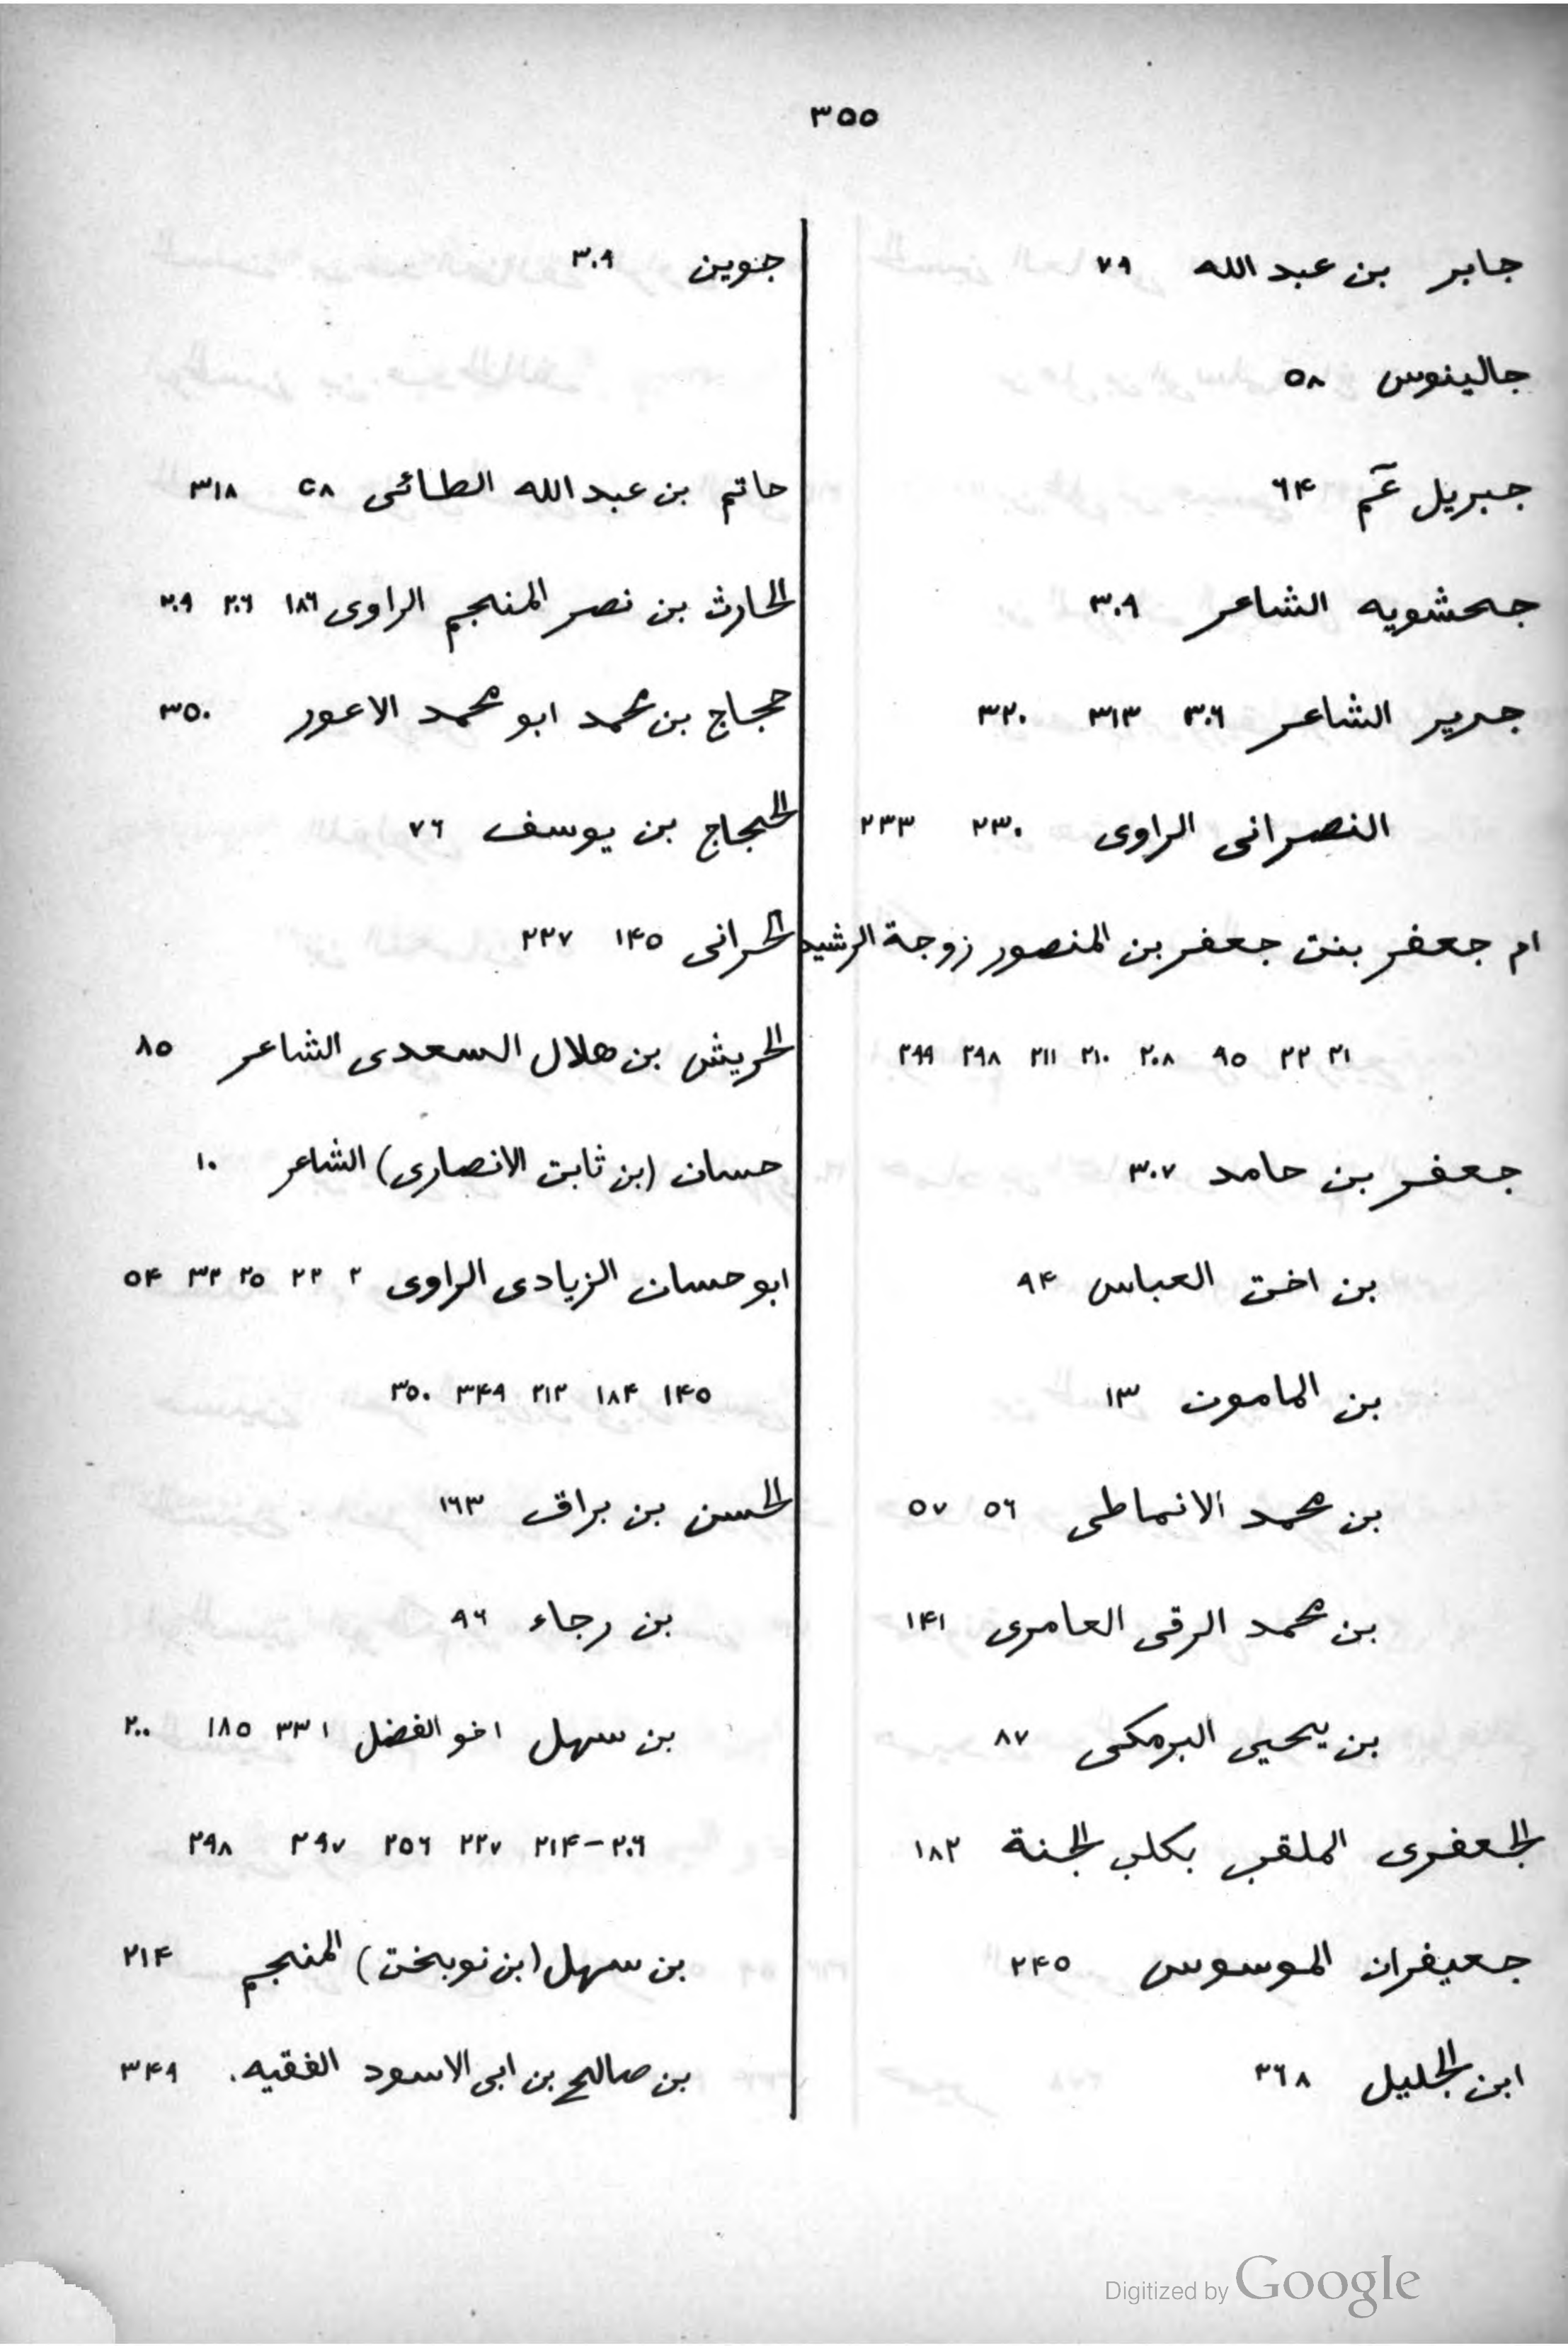 ٣٥٥
جابر بن عبد الله ٧٩
جالينوس ٥٨
جبريل عَم ٦۴
جحشويه الشاعر ٣٠٩
جرير الشاعر ٣٠٦ ٣١٣ ٣٢٠
النصرانى الراوى ٢٣٠ ٢٣٣
ام جعفر بنت جعفر بن المنصور زوجة الرشيد
٢١ ٢٢ ٩٥ ٢٠٨ ٢١٠ ٢١١ ٢٩٨ ٢٩٩
جعفر بن حامد ٣٠٧
بن اخت العباس ٩۴
بن المامون ١٣
بن محمد الانماطى ٥٦ ٥٧
بن محمد الرقى العامرى ١۴١
بن يحيى البرمكى ٨٧
الجعفرى الملقب بكلب الجنة ١٨٢
جعيفران الموسوس ٢۴٥
ابن الجليل ٢٦٨
جنوين ٣٠٩
حاتم بن عبد الله الطائى ٢٨ ٣١٨
الحارث بن نصر المنجم الراوى ١٨٦ ٢٠٦ ٢٠٩
حجاج بن محمد ابو محمد الاعور ٣٥٠
الحجاج بن يوسف ٧٦
الحرانى ١۴٥ ٢٢٧
الحريش بن هلال السعدى الشاعر ٨٥
حسان (ابن ثابت الانصارى) الشاعر ١٠
ابو حسان الزيادى الراوى ٢ ٢٢ ٢٥ ٣٢ ٥۴
١۴٥ ١٨۴ ٢١٢ ٣۴٩ ٣٥٠
الحسن بن براق ١٦٣
بن رجاء ٩٦
بن سهل اخو الفضل ١ ٣٣ ١٨٥ ٢٠٠
٢٠٦–٢١۴ ٢٢٧ ٢٥٦ ٢٩٧ ٢٩٨
بن سهل (ابن نوبخت) المنجم ٢١۴
بن صالح بن ابى الاسود الفقيه. ٣۴٩
Digitized by Google